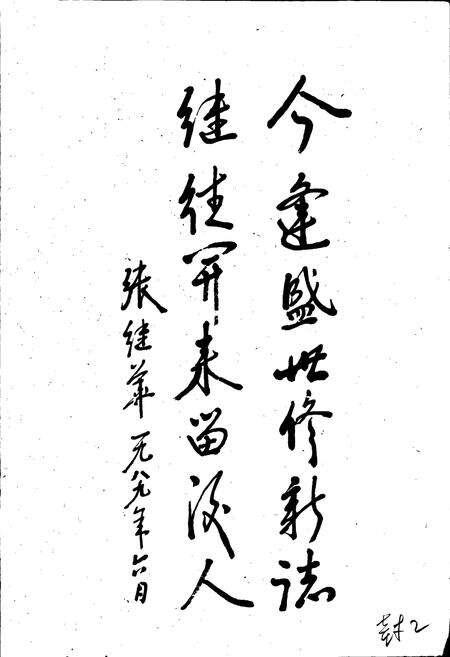 今逢盛世修新誌
继往開来留後人
张继華 一九八九年六月
封2